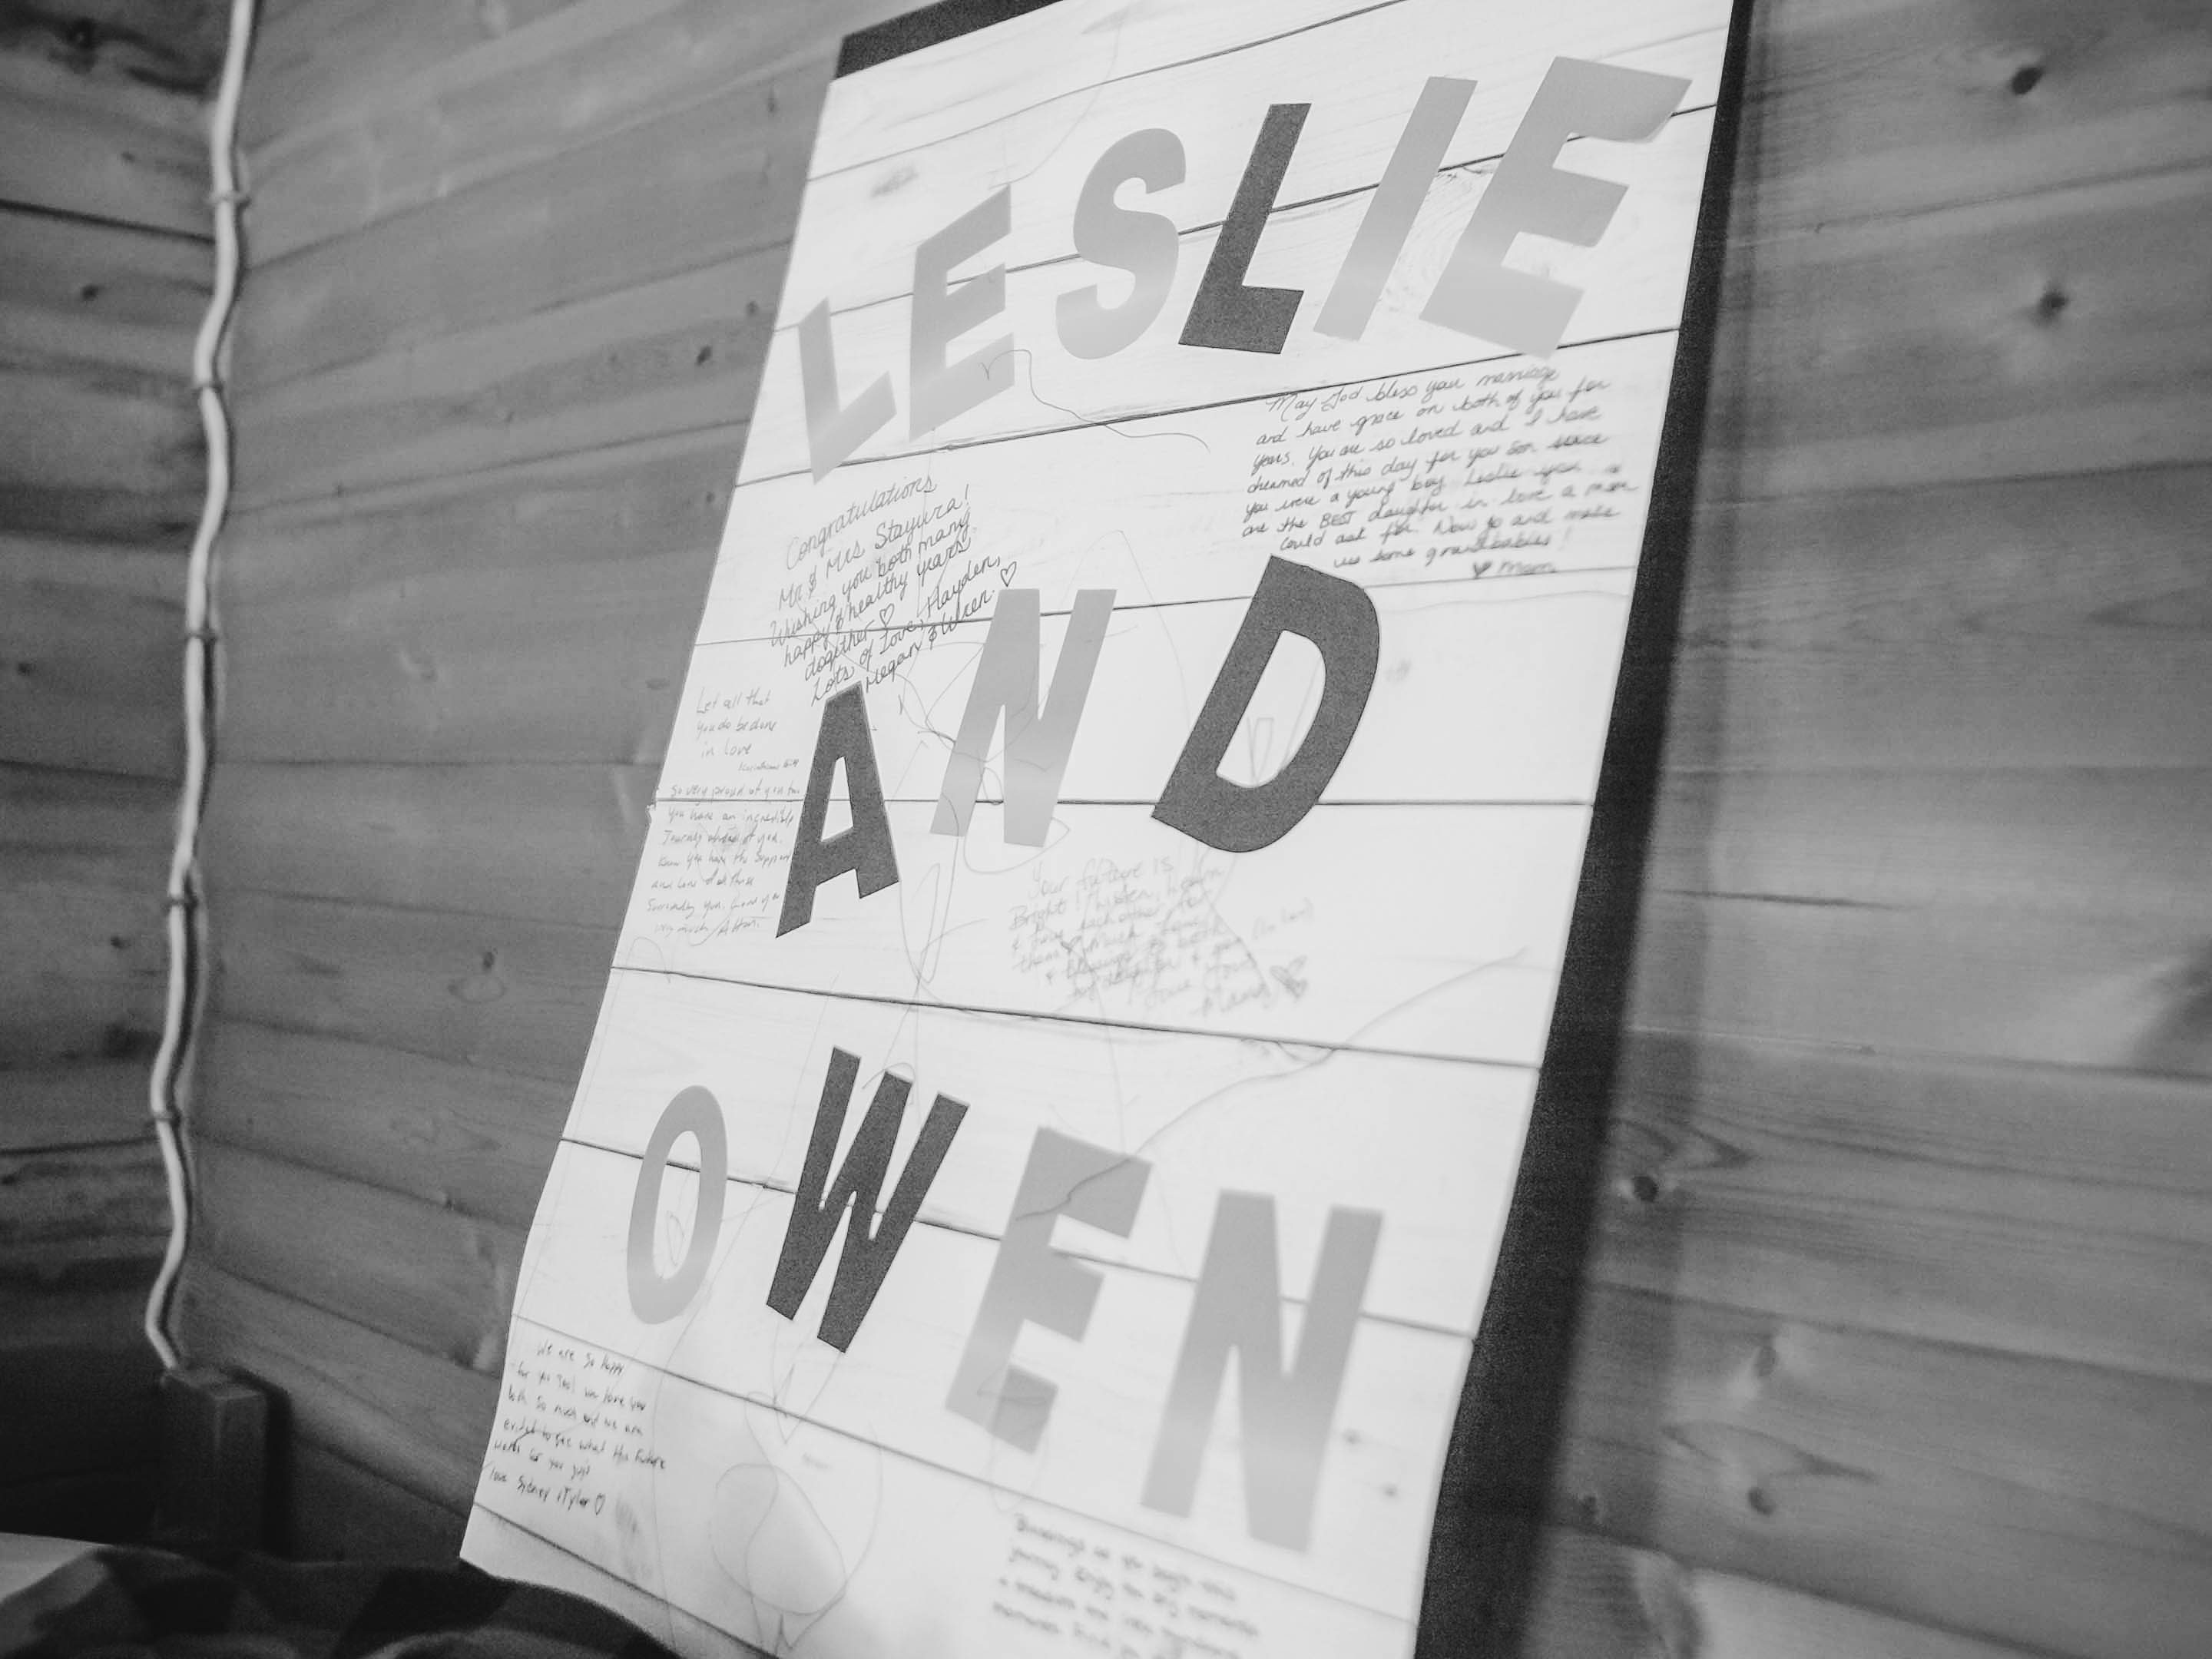 LESLIE
May God bless your marriage
and have grace on both of you for
years. You are so loved and I have
dreamed of this day for you son since
you were a young boy. Leslie you
are the BEST daughter in love a mom
could ask for. Now go and make
us some grandbabies!
♥ Mom
Congratulations
Mr & Mrs Stayura!
Wishing you both many
happy & healthy years
together ♡
Lots of Love, Hayden,
Megan & Wren. ♡
AND
Let all that
you do be done
in love
So very proud of you two
You have an incredible
Journey ahead of you.
Know you have the support
and love of all those
Surrounding you. Love you
very much
Your future is
Bright! Listen, learn
& love each other
OWEN
We are so happy
for you Two! we love you
both So much and we are
excited to see what the Future
Holds for you guys
love Sydney & Tyler ♡
Blessings as you begin this
journey. Enjoy the